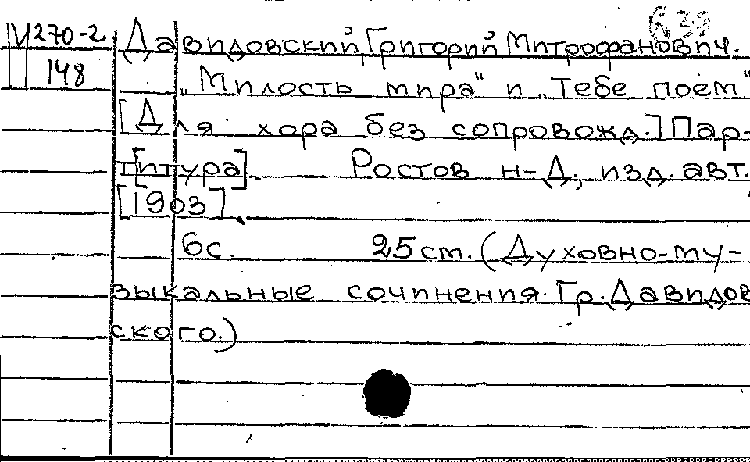 639
М 270-2 Давидовский, Григорий Митрофанович.
148 „Милость мира" и „Тебе поем"
[Для хора без сопровожд.] Пар-
т[итура]. Ростов н-Д, изд. авт.
[1903].
6с. 25 см. (Духовно-му-
зыкальные сочинения Гр. Давидов
ского.)